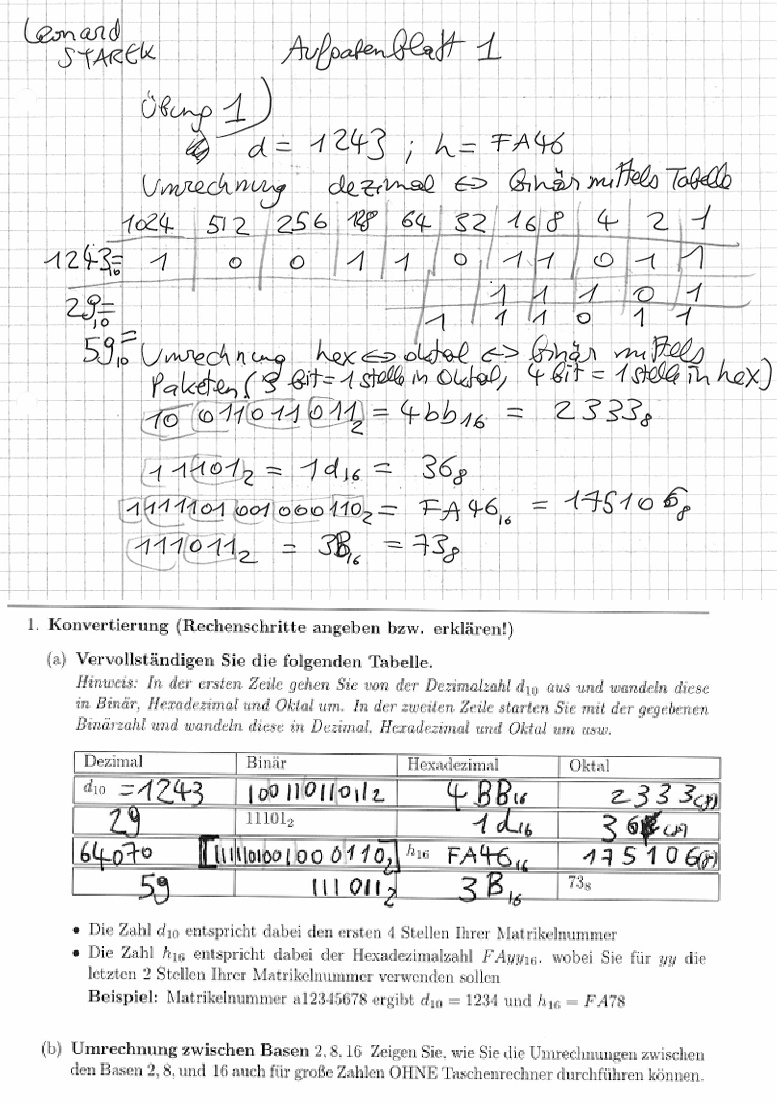 Leonard
STAREK
Aufgabenblatt 1
Übung 1)
d = 1243 ; h = FA46
Umrechnung dezimal ⇔ binär mittels Tabelle
1024 512 256 128 64 32 16 8 4 2 1
1243₁₀= 1 0 0 1 1 0 1 1 0 1 1
29₁₀= 1 1 1 0 1
59₁₀= 1 1 1 0 1 1
Umrechnung hex ⇔ oktal ⇔ binär mittels
Paketen (3 bit = 1 stelle in Oktal, 4 bit = 1 stelle in hex)
10 011011011₂ = 4bb₁₆ = 2333₈
11101₂ = 1d₁₆ = 36₈
1111101001000110₂ = FA46₁₆ = 175106₈
111011₂ = 3B₁₆ = 73₈
1. Konvertierung (Rechenschritte angeben bzw. erklären!)
(a) Vervollständigen Sie die folgenden Tabelle.
Hinweis: In der ersten Zeile gehen Sie von der Dezimalzahl d₁₀ aus und wandeln diese
in Binär, Hexadezimal und Oktal um. In der zweiten Zeile starten Sie mit der gegebenen
Binärzahl und wandeln diese in Dezimal, Hexadezimal und Oktal um usw.
Dezimal Binär Hexadezimal Oktal
d₁₀ = 1243 10011011011₂ 4BB₁₆ 2333₍₈₎
29 11101₂ 1d₁₆ 36₍₈₎
64070 1111101001000110₂ h₁₆ FA46₁₆ 175106₍₈₎
59 111011₂ 3B₁₆ 73₈
• Die Zahl d₁₀ entspricht dabei den ersten 4 Stellen Ihrer Matrikelnummer
• Die Zahl h₁₆ entspricht dabei der Hexadezimalzahl FAyy₁₆, wobei Sie für yy die
letzten 2 Stellen Ihrer Matrikelnummer verwenden sollen
Beispiel: Matrikelnummer a12345678 ergibt d₁₀ = 1234 und h₁₆ = FA78
(b) Umrechnung zwischen Basen 2, 8, 16 Zeigen Sie, wie Sie die Umrechnungen zwischen
den Basen 2, 8, und 16 auch für große Zahlen OHNE Taschenrechner durchführen können.